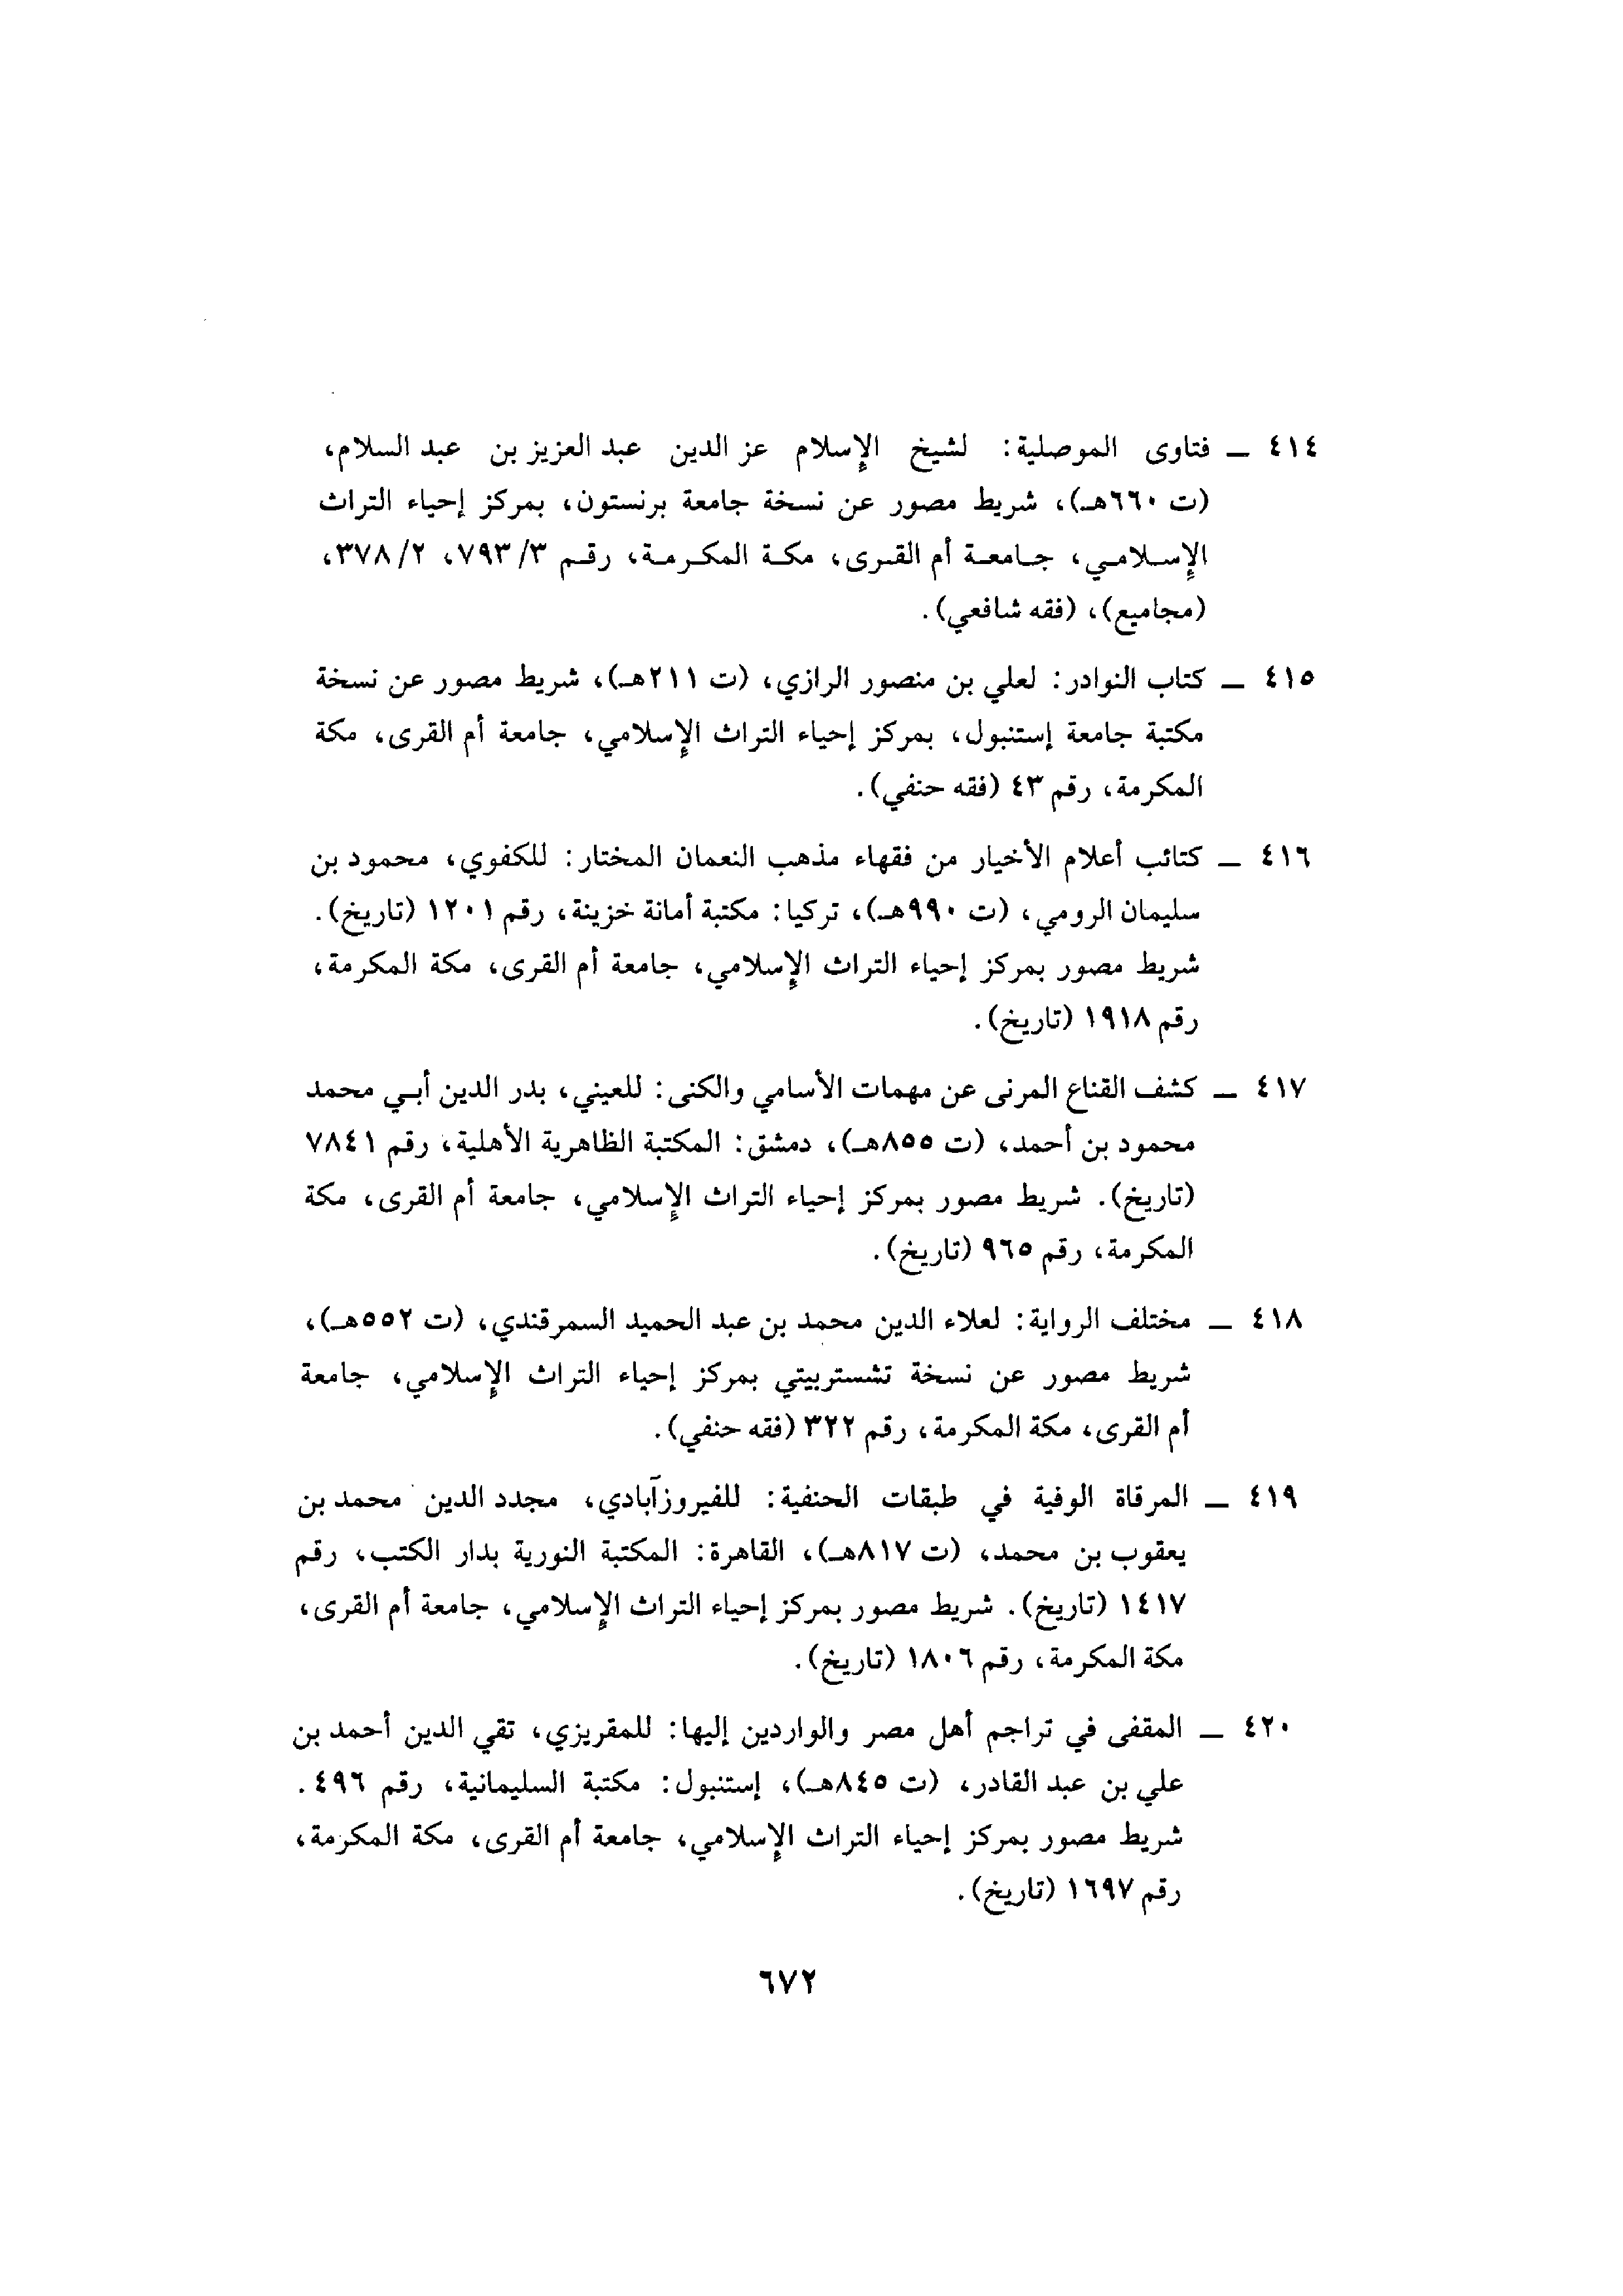 ٤١٤ ــ فتاوى الموصلية: لشيخ الإسلام عز الدين عبد العزيز بن عبد السلام،
(ت ٦٦٠هـ)، شريط مصور عن نسخة جامعة برنستون، بمركز إحياء التراث
الإسلامي، جامعة أم القرى، مكة المكرمة، رقم ٧٩٣/٣، ٣٧٨/٢،
(مجاميع)، (فقه شافعي).
٤١٥ ــ كتاب النوادر: لعلي بن منصور الرازي، (ت ٢١١هـ)، شريط مصور عن نسخة
مكتبة جامعة إستنبول، بمركز إحياء التراث الإسلامي، جامعة أم القرى، مكة
المكرمة، رقم ٤٣ (فقه حنفي).
٤١٦ ــ كتائب أعلام الأخيار من فقهاء مذهب النعمان المختار: للكفوي، محمود بن
سليمان الرومي، (ت ٩٩٠هـ)، تركيا: مكتبة أمانة خزينة، رقم ١٢٠١ (تاريخ).
شريط مصور بمركز إحياء التراث الإسلامي، جامعة أم القرى، مكة المكرمة،
رقم ١٩١٨ (تاريخ).
٤١٧ ــ كشف القناع المرنى عن مهمات الأسامي والكنى: للعيني، بدر الدين أبي محمد
محمود بن أحمد، (ت ٨٥٥هـ)، دمشق: المكتبة الظاهرية الأهلية، رقم ٧٨٤١
(تاريخ). شريط مصور بمركز إحياء التراث الإسلامي، جامعة أم القرى، مكة
المكرمة، رقم ٩٦٥ (تاريخ).
٤١٨ ــ مختلف الرواية: لعلاء الدين محمد بن عبد الحميد السمرقندي، (ت ٥٥٢هـ)،
شريط مصور عن نسخة تشستربيتي بمركز إحياء التراث الإسلامي، جامعة
أم القرى، مكة المكرمة، رقم ٣٢٢ (فقه حنفي).
٤١٩ ــ المرقاة الوفية في طبقات الحنفية: للفيروزآبادي، مجدد الدين محمد بن
يعقوب بن محمد، (ت ٨١٧هـ)، القاهرة: المكتبة النورية بدار الكتب، رقم
١٤١٧ (تاريخ). شريط مصور بمركز إحياء التراث الإسلامي، جامعة أم القرى،
مكة المكرمة، رقم ١٨٠٦ (تاريخ).
٤٢٠ ــ المقفى في تراجم أهل مصر والواردين إليها: للمقريزي، تقي الدين أحمد بن
علي بن عبد القادر، (ت ٨٤٥هـ)، إستنبول: مكتبة السليمانية، رقم ٤٩٦.
شريط مصور بمركز إحياء التراث الإسلامي، جامعة أم القرى، مكة المكرمة،
رقم ١٦٩٧ (تاريخ).
٦٧٢